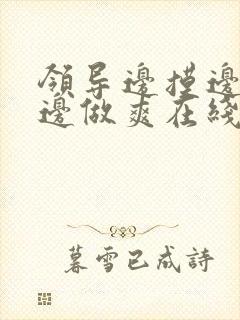 領导邊摸邊
邊做爽在綫
暮雪已成詩